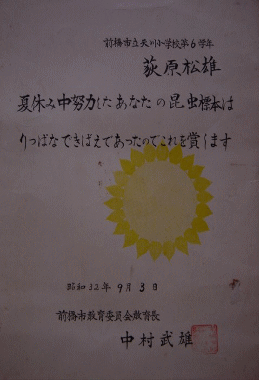 前橋市立天川小学校第6学年
荻原松雄
夏休み中努力したあなたの昆虫標本は
りっぱなできばえであったのでこれを賞します
昭和32年9月3日
前橋市教育委員会教育長
中村武雄